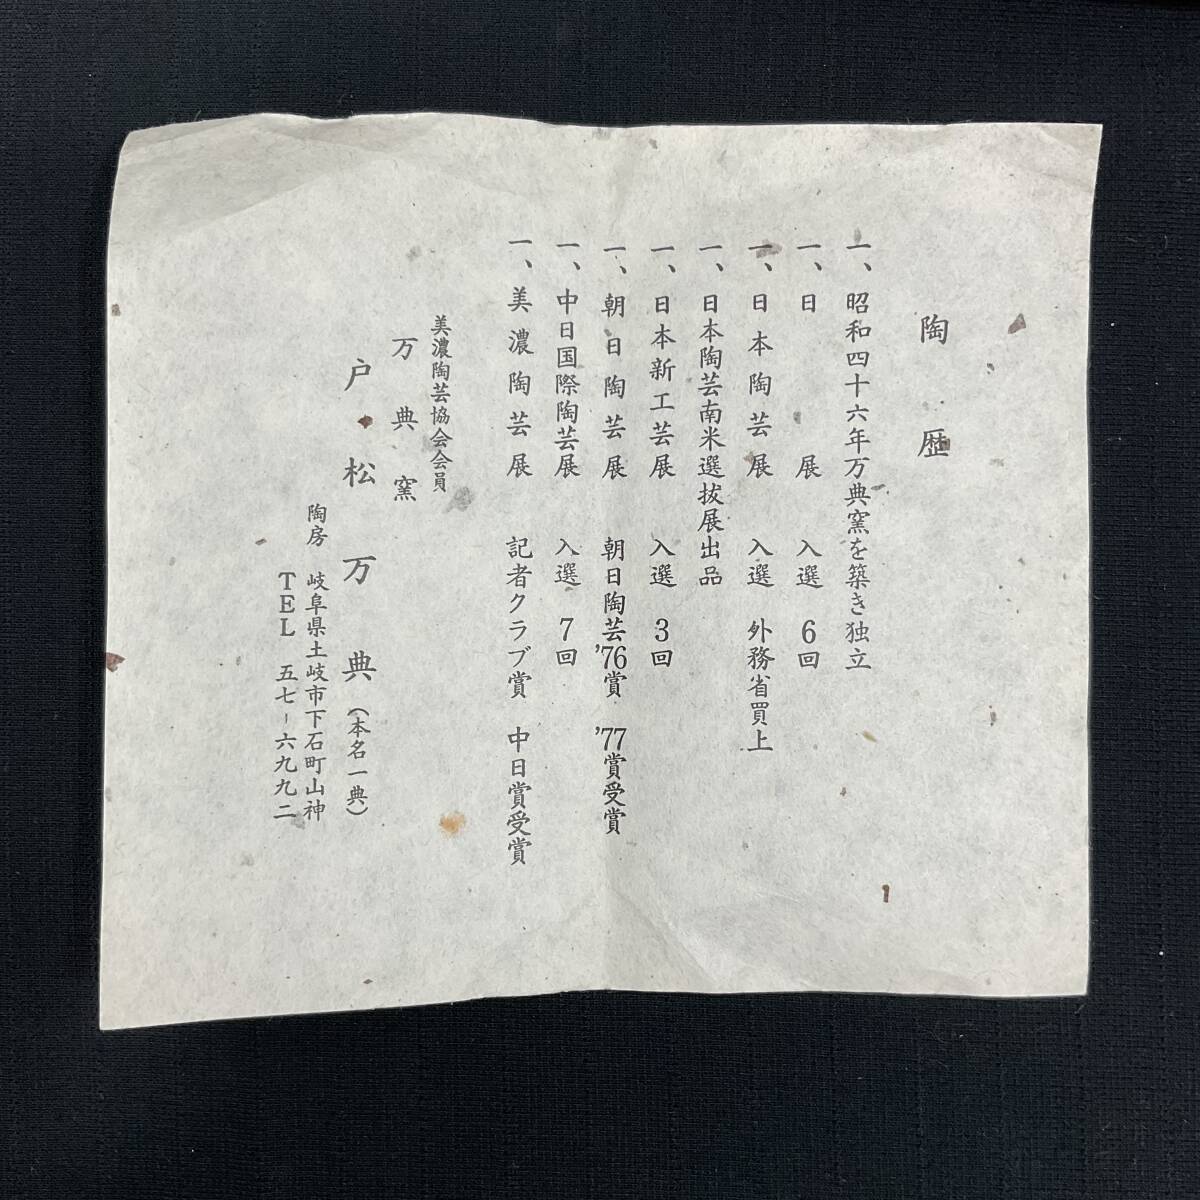 陶歴
一、昭和四十六年万典窯を築き独立
一、日展 入選 6回
一、日本陶芸展 入選 外務省買上
一、日本陶芸南米選抜展出品
一、日本新工芸展 入選 3回
一、朝日陶芸展 朝日陶芸'76賞 '77賞受賞
一、中日国際陶芸展 入選 7回
一、美濃陶芸展 記者クラブ賞 中日賞受賞
美濃陶芸協会会員
万典窯
戸松万典(本名一典)
陶房 岐阜県土岐市下石町山神
TEL 五七-六九九二